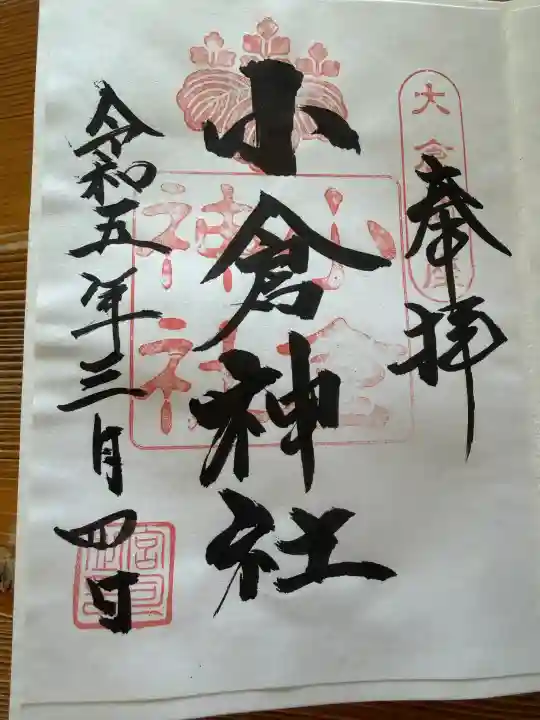 奉拝
小倉神社
令和五年三月四日
小倉
神社